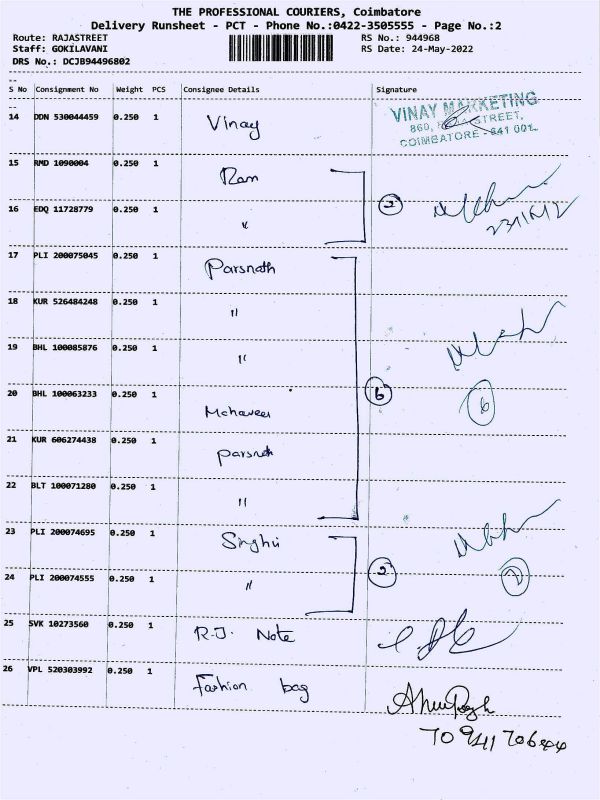 THE PROFESSIONAL COURIERS, Coimbatore
Delivery Runsheet - PCT - Phone No.:0422-3505555 - Page No.:2
Route: RAJASTREET
RS No.: 944968
Staff: GOKILAVANI
RS Date: 24-May-2022
DRS No.: DCJB94496802
S No Consignment No Weight PCS Consignee Details Signature
14 DDN 530044459 0.250 1 Vinay
VINAY MARKETING
860, STREET,
COIMBATORE - 641 001.
15 RMD 1090004 0.250 1 Ram
16 EDQ 11728779 0.250 1 " 2
17 PLI 200075045 0.250 1 Parsnath
18 KUR 526484248 0.250 1 "
19 BHL 100085876 0.250 1 "
20 BHL 100063233 0.250 1 Mahaveer 6 6
21 KUR 606274438 0.250 1 Parsnath
22 BLT 100071280 0.250 1 "
23 PLI 200074695 0.250 1 Singhvi
24 PLI 200074555 0.250 1 " 2 2
25 SVK 10273560 0.250 1 R.J. Note
26 VPL 520303992 0.250 1 Fashion bag